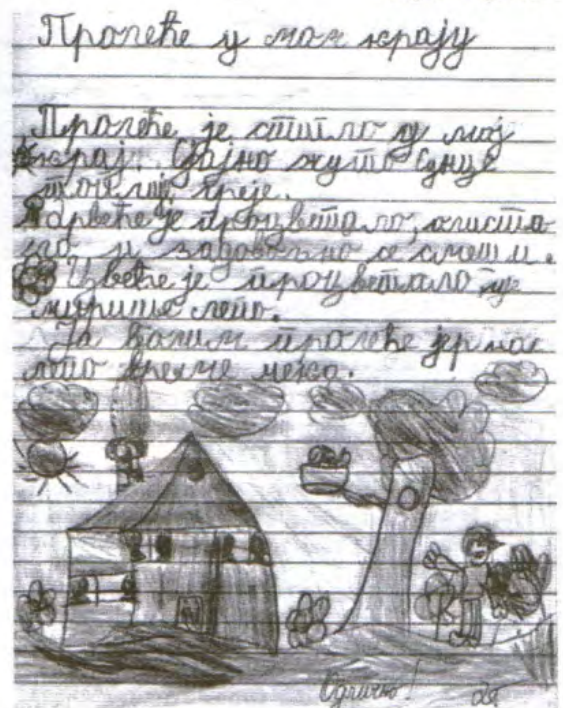 Пролеће у мом крају
Пролеће је стигло у мој
крај. Сјајно жуто сунце
топлије греје.
Дрвеће је процветало, олиста
ло и задовољно се смеши.
Цвеће је процветало и
мирише лепо.
Ја волим пролеће јер нас
лепо време чека.
Одлично!